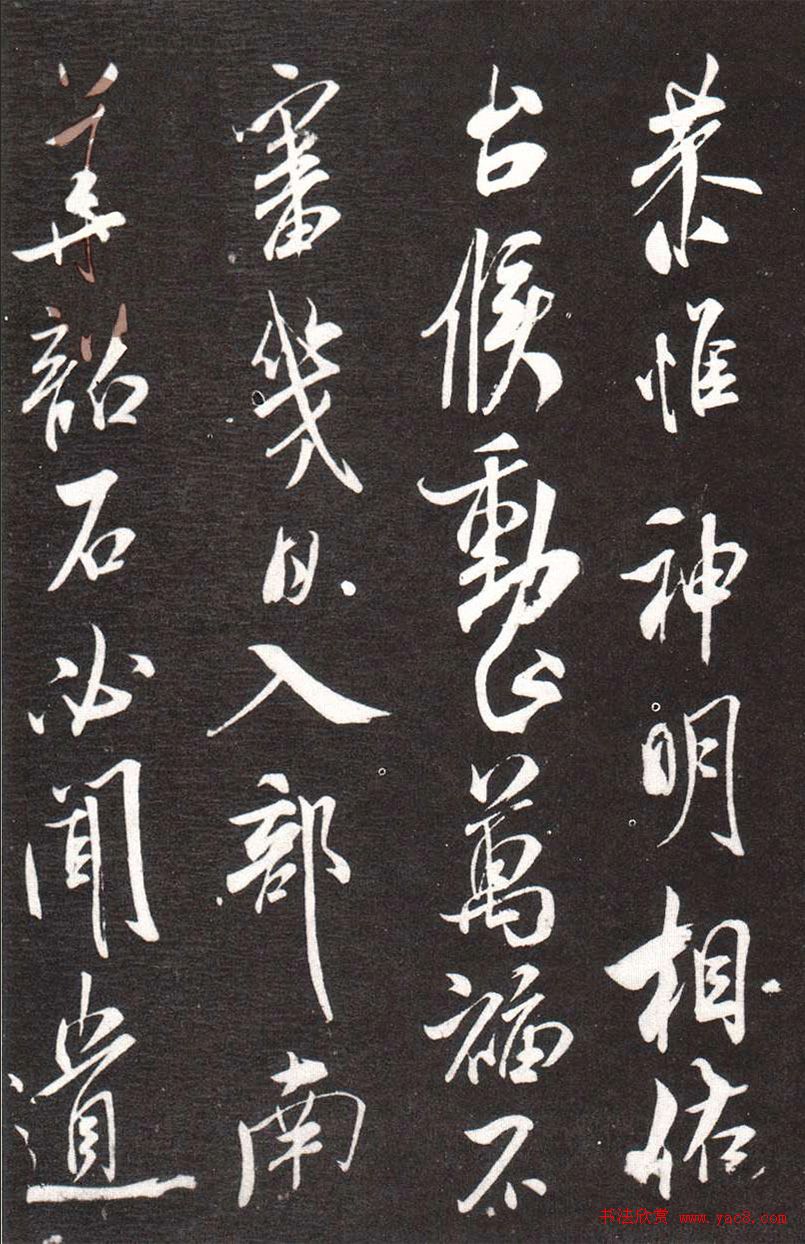 恭惟神明相佑
台候動止萬福不
審幾日入部南
華韶石必聞遺
书法欣赏 www.yac8.com